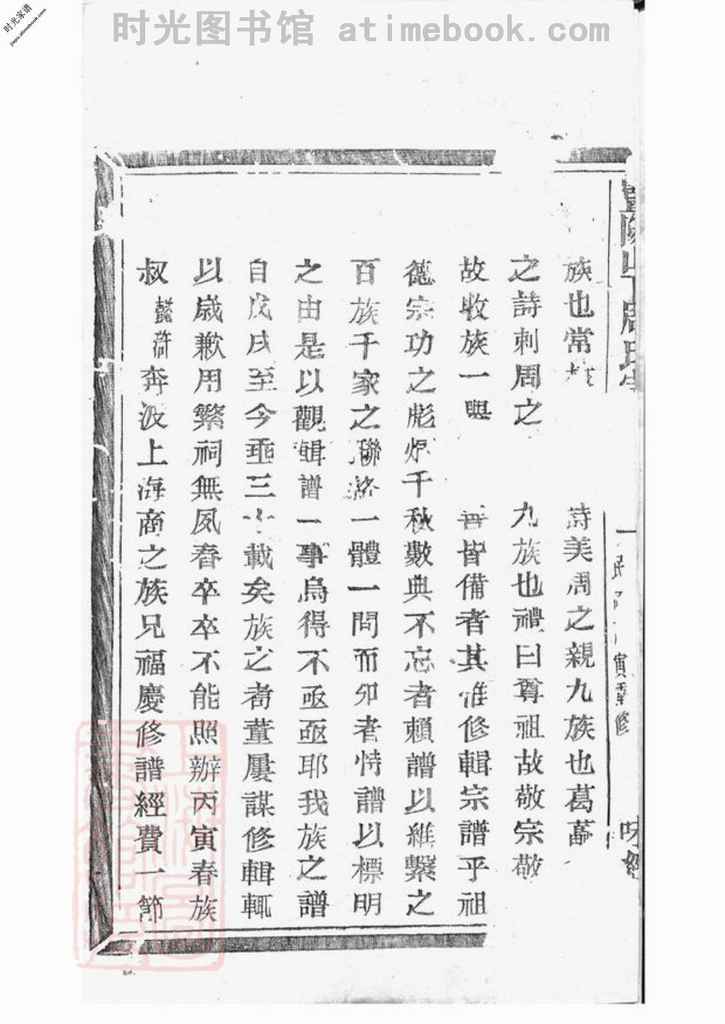 时光图书馆 atimebook.com
时光家谱
族也常
詩美周之親九族也葛藟
之詩刺周之
九族也禮曰尊祖故敬宗敬
故收族一舉
皆備者其惟修輯宗譜乎祖
德宗功之彪炳千秋數典不忘者賴譜以維繫之
百族千家之聯絡一體一問而知者恃譜以標明
之由是以觀輯譜一事烏得不亟亟耶我族之譜
自戊戌至今垂三十載矣族之耆董屢謀修輯輒
以歲歉用繁祠無夙春卒卒不能照辦丙寅春族
叔懿 奔波上海商之族兄福慶修譜經費一節
周氏
寅重修